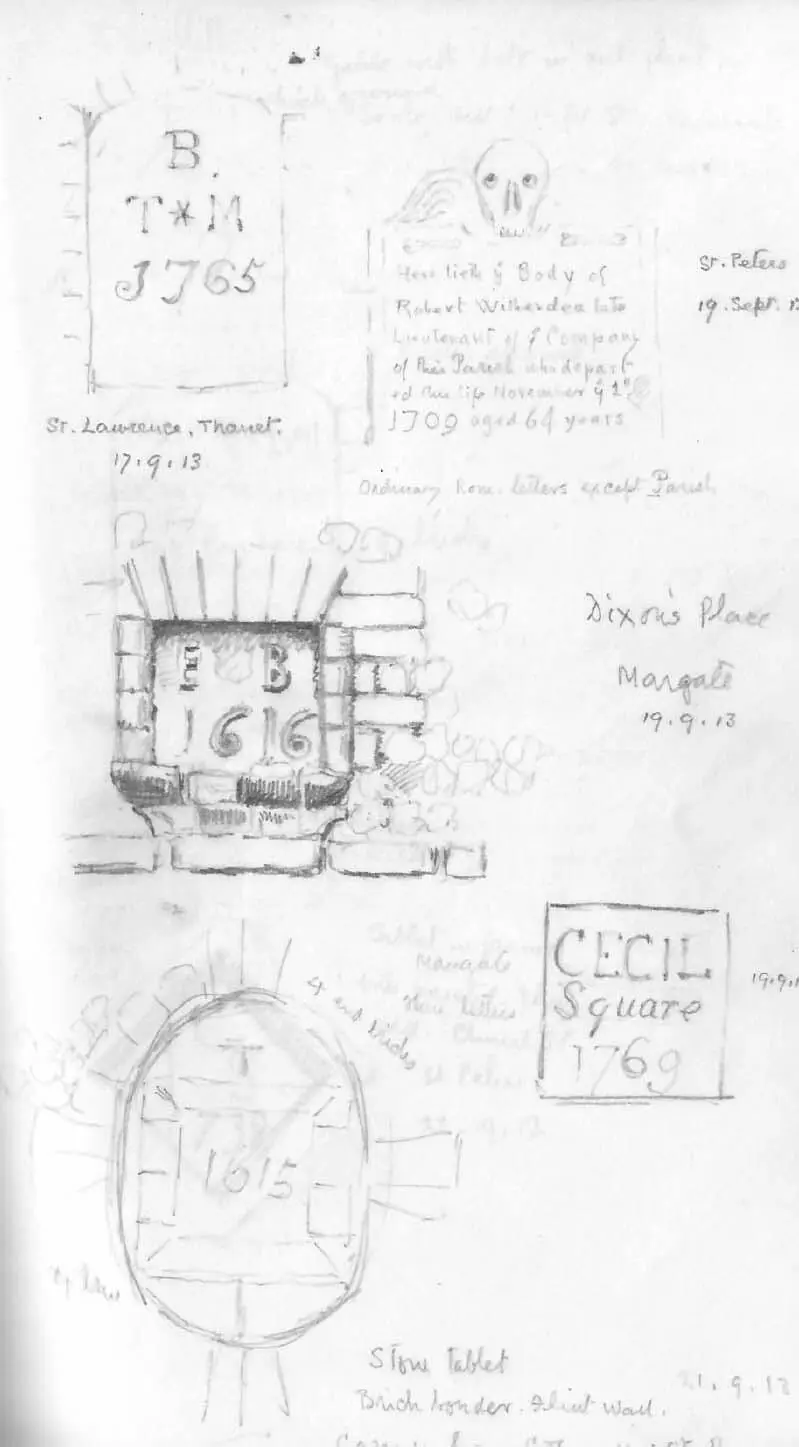 B.
T*M
1765
St. Lawrence, Thanet.
17.9.13
Here lieth ye Body of
Robert Witherden late
Lieutenant of ye Company
of this Parish who depart
ed this life November ye 1st
1709 aged 64 years
Ordinary Rom. letters except Parish
St. Peters
19. Sept.
E B
1616
Dixon's Place
Margate
19.9.13
CECIL
Square
1769
19.9.1
1615
Margate
St Peters
Stone tablet
Brick border. Flint wall.
21.9.13